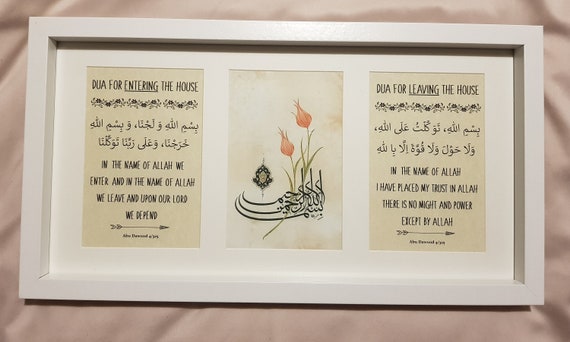 DUA FOR ENTERING THE HOUSE
بِسْمِ اللهِ وَلَجْنَا، وَ بِسْمِ اللهِ
خَرَجْنَا، وَعَلَى رَبِّنَا تَوَكَّلْنَا
IN THE NAME OF ALLAH WE
ENTER AND IN THE NAME OF ALLAH
WE LEAVE AND UPON OUR LORD
WE DEPEND
Abu Dawood 4/325
بسم الله الرحمن الرحيم
DUA FOR LEAVING THE HOUSE
بِسْمِ اللهِ، تَوَكَّلْتُ عَلَى اللهِ،
وَلَا حَوْلَ وَلَا قُوَّةَ إِلَّا بِاللهِ
IN THE NAME OF ALLAH
I HAVE PLACED MY TRUST IN ALLAH
THERE IS NO MIGHT AND POWER
EXCEPT BY ALLAH
Abu Dawood 4/325